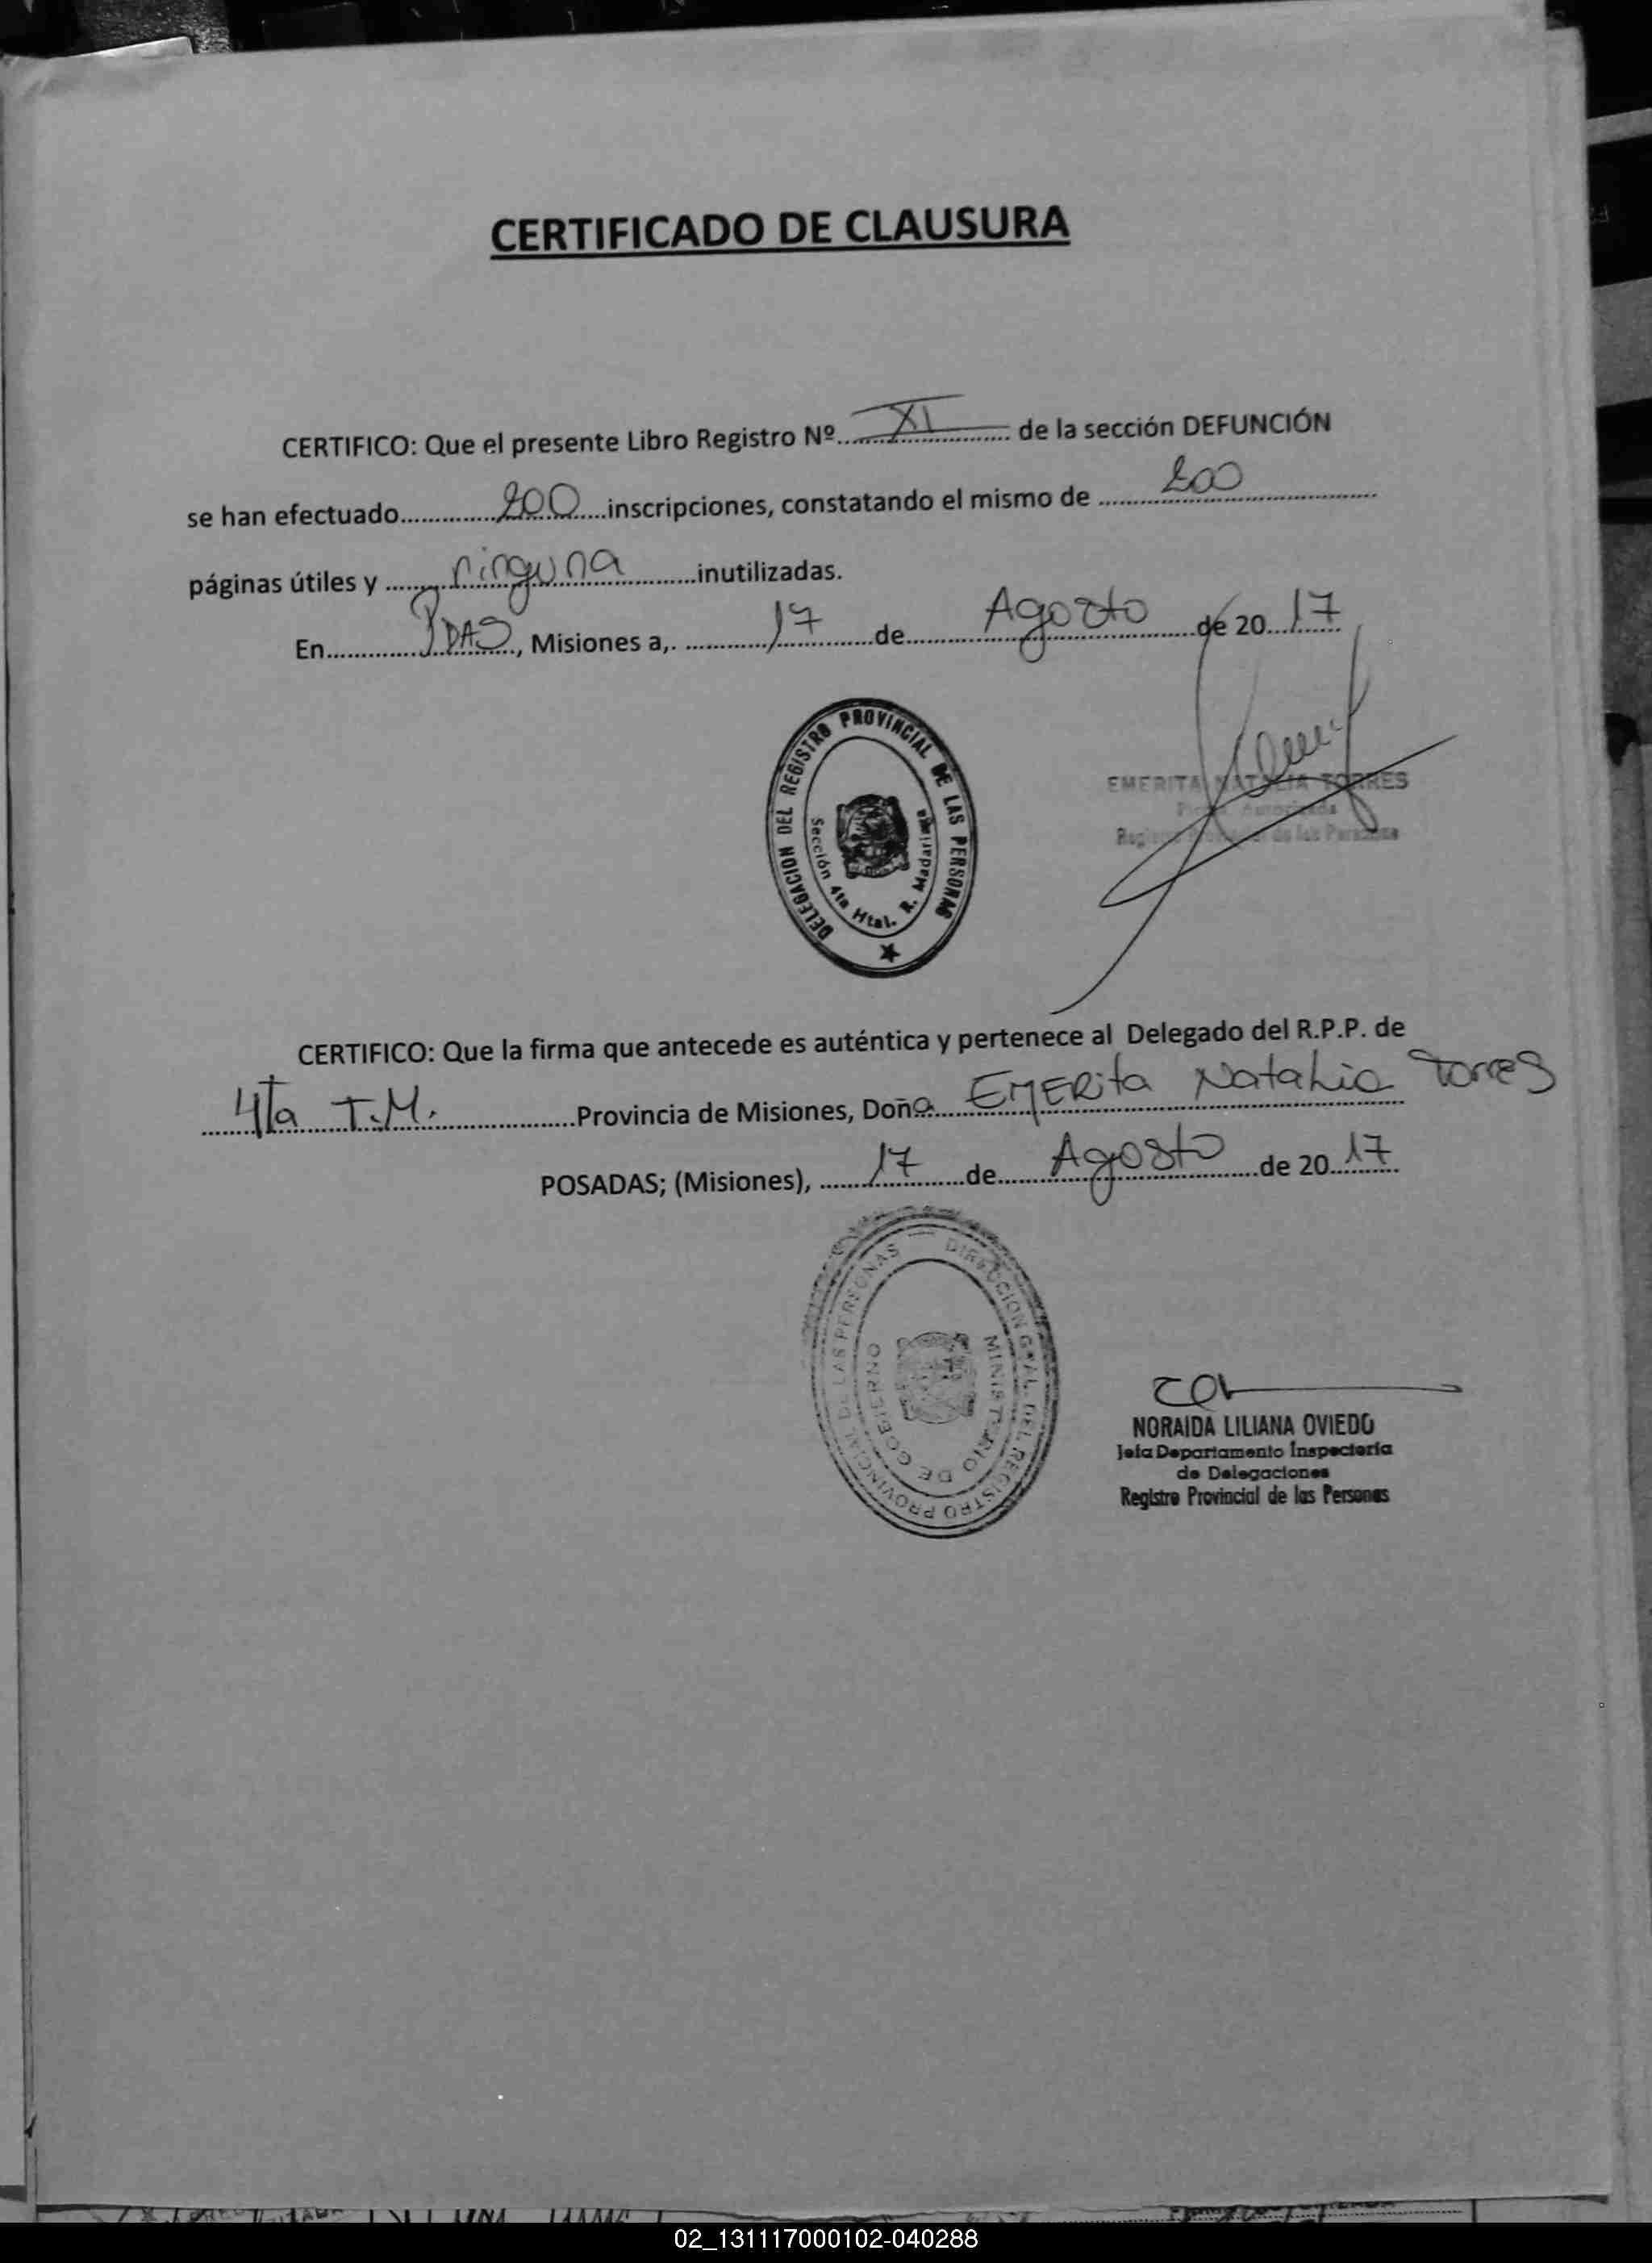 CERTIFICADO DE CLAUSURA
CERTIFICO: Que el presente Libro Registro Nº XI de la sección DEFUNCIÓN
se han efectuado 200 inscripciones, constatando el mismo de 200
páginas útiles y ninguna inutilizadas.
En PDAS, Misiones a,. 17 de Agosto de 2017
DELEGACION DEL REGISTRO PROVINCIAL DE LAS PERSONAS
Sección 4ta Htal. R. Madariaga
EMERITA NATALIA TORRES
Registro Provincial de las Personas
CERTIFICO: Que la firma que antecede es auténtica y pertenece al Delegado del R.P.P. de
4ta T.M. Provincia de Misiones, Doña EMERita Natalia Torres
POSADAS; (Misiones), 17 de Agosto de 2017
DIRECCION GRAL. DEL REGISTRO PROVINCIAL DE LAS PERSONAS
MINISTERIO DE GOBIERNO
NORAIDA LILIANA OVIEDO
Jefa Departamento Inspectoría
de Delegaciones
Registro Provincial de las Personas
02_131117000102-040288